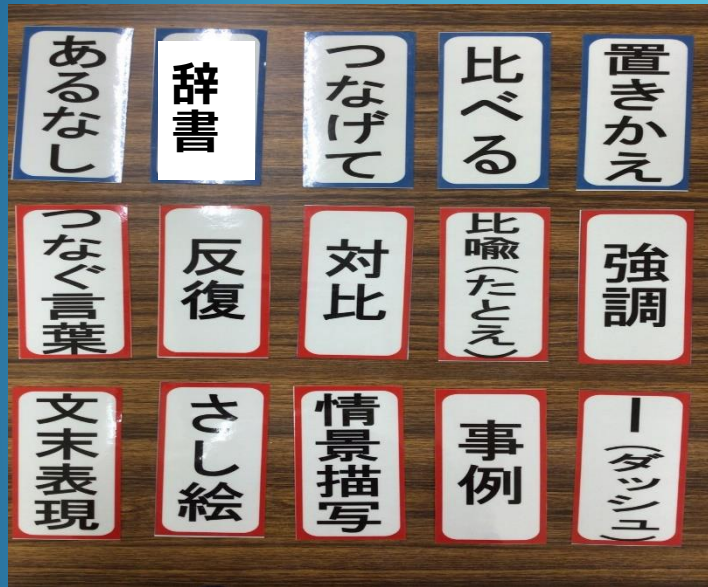 あるなし
辞書
つなげて
比べる
置きかえ
つなぐ言葉
反復
対比
比喩(たとえ)
強調
文末表現
さし絵
情景描写
事例
ー(ダッシュ)